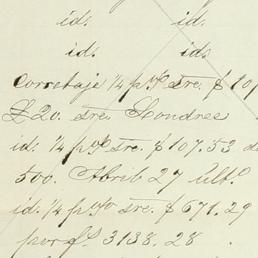 id. id.
id. id.
Corretaje ¼ p% sre. $ 107
£20. sre. Londres
id: ¼ p% sre. $107.53 d
500. Abril 27 ult.º
id: ¼ p% sre. $ 671.29
por 3138.28.